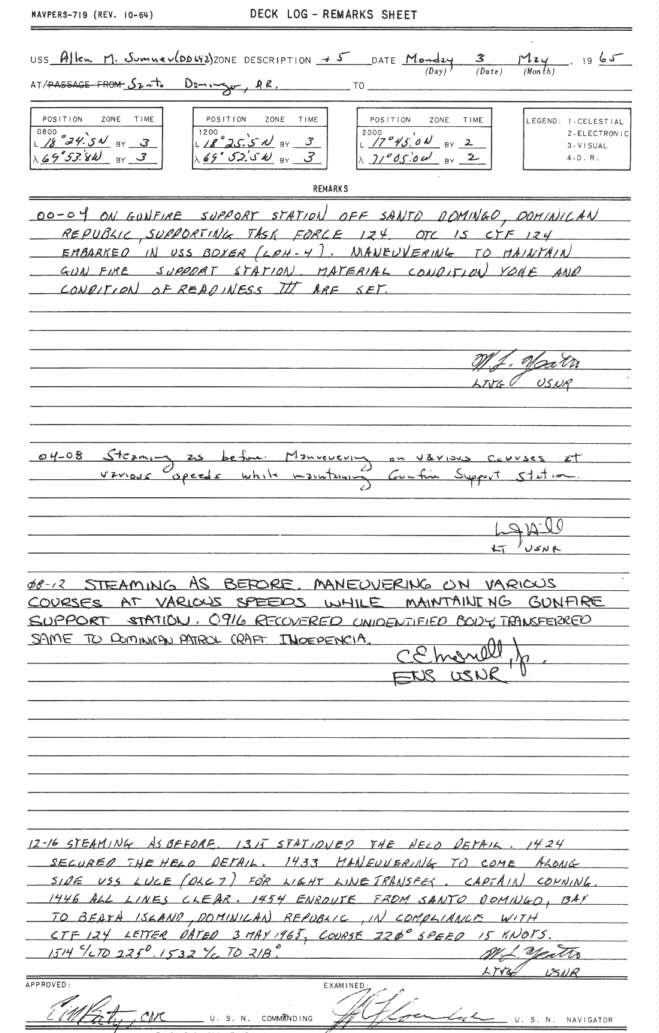 NAVPERS-719 (REV. 10-64) DECK LOG – REMARKS SHEET
USS Allen M. Sumner (DD692) ZONE DESCRIPTION +5 DATE Monday 3 May, 1965
(Day) (Date) (Month)
AT/PASSAGE FROM Santo Domingo, D.R. TO
POSITION ZONE TIME POSITION ZONE TIME POSITION ZONE TIME LEGEND: 1-CELESTIAL
0800 1200 2000 2-ELECTRONIC
L 18°24.5N BY 3 L 18°25.5N BY 3 L 17°45.0N BY 2 3-VISUAL
λ 69°53.8W BY 3 λ 69°52.5W BY 3 λ 71°05.0W BY 2 4-D. R.
REMARKS
00-04 ON GUNFIRE SUPPORT STATION OFF SANTO DOMINGO, DOMINICAN
REPUBLIC, SUPPORTING TASK FORCE 124. OTC IS CTF 124
EMBARKED IN USS BOXER (LPH-4). MANEUVERING TO MAINTAIN
GUN FIRE SUPPORT STATION. MATERIAL CONDITION YOKE AND
CONDITION OF READINESS III ARE SET.
M. L.
LTJG USNR
04-08 Steaming as before. Manuevering on various courses at
various speeds while maintaining Gunfire Support Station.
Hill
LT USNR
08-12 STEAMING AS BEFORE. MANEUVERING ON VARIOUS
COURSES AT VARIOUS SPEEDS WHILE MAINTAINING GUNFIRE
SUPPORT STATION. 0916 RECOVERED UNIDENTIFIED BODY, TRANSFERRED
SAME TO DOMINICAN PATROL CRAFT INDEPENCIA.
C.E. Merrell, Jr.
ENS USNR
12-16 STEAMING AS BEFORE. 1315 STATIONED THE HELO DETAIL. 1424
SECURED THE HELO DETAIL. 1433 MANEUVERING TO COME ALONG
SIDE USS LUCE (DLG 7) FOR LIGHT LINE TRANSFER. CAPTAIN CONNING.
1446 ALL LINES CLEAR. 1454 ENROUTE FROM SANTO DOMINGO, BAY
TO BEATA ISLAND, DOMINICAN REPUBLIC, IN COMPLIANCE WITH
CTF 124 LETTER DATED 3 MAY 1965, COURSE 220° SPEED 15 KNOTS.
1514 C/C TO 225°. 1532 C/C TO 218°.
M. L.
LTJG USNR
APPROVED: EXAMINED:
CDR U. S. N. COMMANDING U. S. N. NAVIGATOR